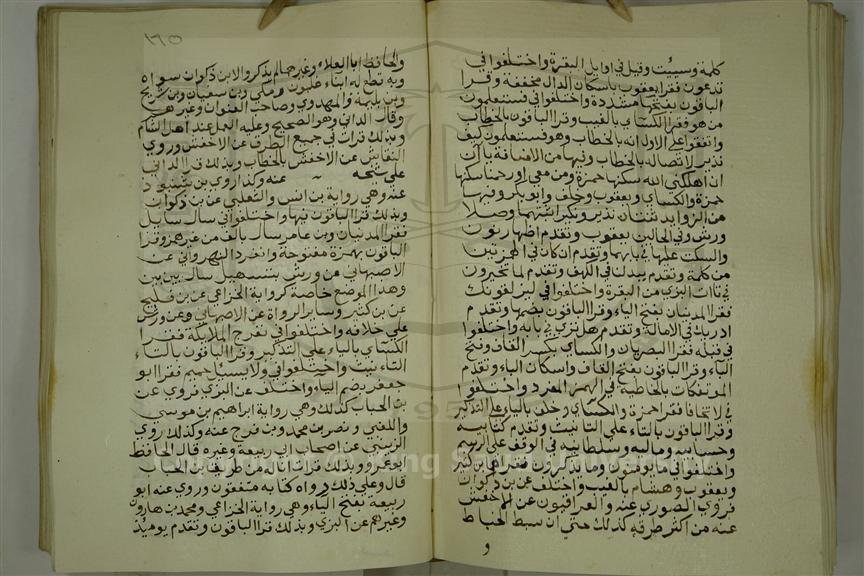 كلمة وسيئت وقيل في اوايل البقرة واختلفوا في
تدعون فقرا يعقوب باسكان الدال مخففة وقرا
الباقون بفتحها مشددة واختلفوا في فستعلمون
من هو فقرا الكسآي بالغيب وقرا الباقون بالخطاب
واتفقوا علي الاول انه بالخطاب وهو فستعلمون كيف
نذير لاتصاله بالخطاب وفيها من الاضافة ياآن
ان اهلكني الله سكنها حمزة ومن معي اورحمنا سكنها
حمزة والكسآي ويعقوب وخلف وابو بكر وفيها
من الزوايد ثنتان نذير ونكير اثبتهما وصلا
ورش وفي الحالين يعقوب وتقدم اظهار نون
والسكت عليها في بابهما وتقدم ان كان في الهمزتين
من كلمة وتقدم يبدلنا في الكهف وتقدم لما تخيرون
في تاات البزي من البقرة واختلفوا في ليزلقونك
فقرا المدنيان بفتح الياء وقرا الباقون بضمها وتقدم
ادريك في الامالة وتقدم هل تري في بابه واختلفوا
في قبله فقرا البصريان والكسآي بكسر القاف وفتح
الباء وقرا الباقون بفتح القاف واسكان الباء وتقدم
الموتفكات بالخاطية في الهمز المفرد واختلفوا
في لا تخفا فقرا حمزة والكسآي وخلف بالياء علي التذكير
وقرا الباقون بالتاء علي التانيث وتقدم كتابيه
وحسابيه وماليه وسلطانيه في الوقف علي الرسم
واختلفوا في ما يومنون وما يذكرون فقرا هما بن كثير
ويعقوب وهشام بالغيب واختلف عن بن ذكوان
فروي الصوري عنه والعراقيون عن الاخفش
عنه من اكثر طرقه كذلك حتي ان سبط الخياط
و
١٦٥
والحافظ ابا العلاء وغيرهما لم يذكروا لابن ذكوان سواه
وبه قطع له ابناء غلبون ومكي وبن سفيان وبن شريح
وبن بليمة والمهدوي وصاحب العنوان وغيرهم
وقال الداني وهو الصحيح وعليه العمل عند اهل الشام
وبذلك قرات في جميع الطرق عن الاخفش وروي
النقاش عن الاخفش بالخطاب وبذلك قرا الداني
علي شيخه عنه وكذا روي بن شنبوذ
عنه وهي رواية بن انس والثعلبي عن بن ذكوان
وبذلك قرا الباقون فيها واختلفوا في سال سايل
فقرا المدنيان وبن عامر سال بالف من غير همز وقرا
الباقون بهمزة مفتوحة وانفرد النهرواني عن
الاصبهاني عن ورش بتسهيل سال بين بين
وهذا الموضع خاصة كرواية الخزاعي عن بن فليح
عن بن كثير وساير الرواة عن الاصبهاني وعن ورش
علي خلافه واختلفوا في تعرج الملايكة فقرا
الكسآي بالياء علي التذكير وقرا الباقون بالتاء
التاءنيث واختلفوا في ولا يسئل حميم فقرا ابو
جعفر بضم الياء واختلف عن البزي فروي عن
بن الحباب كذلك وهي رواية ابراهيم بن موسي
واللهبي ونصر بن محمد وبن فرح عنه وكذلك روي
الزينبي عن اصحاب ابي ربيعة وغيره قال الحافظ
ابو عمرو وبذلك قرات انا له من طريق بن الحباب
قال وعلي ذلك رواة كتابه متفقون وروي عنه ابو
ربيعة بفتح الياء وهي رواية الخزاعي ومحمد بن هارون
وغيرهم عن البزي وبذلك قرا الباقون وتقدم يوميذ